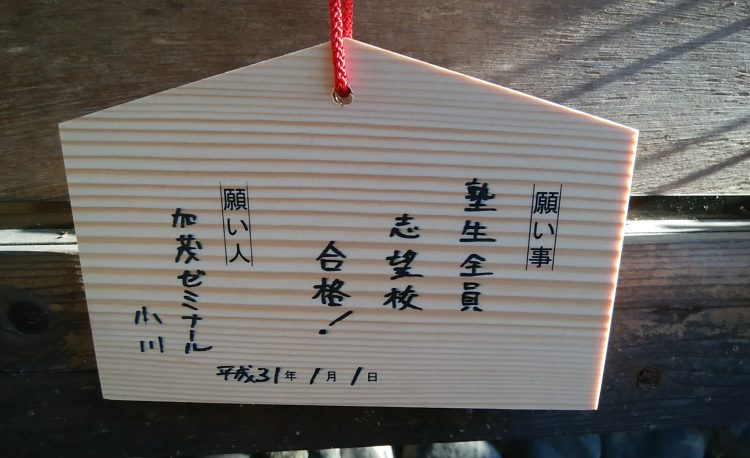 願い事
塾生全員
志望校
合格！
願い人
加茂ゼミナール
小川
平成31年1月1日